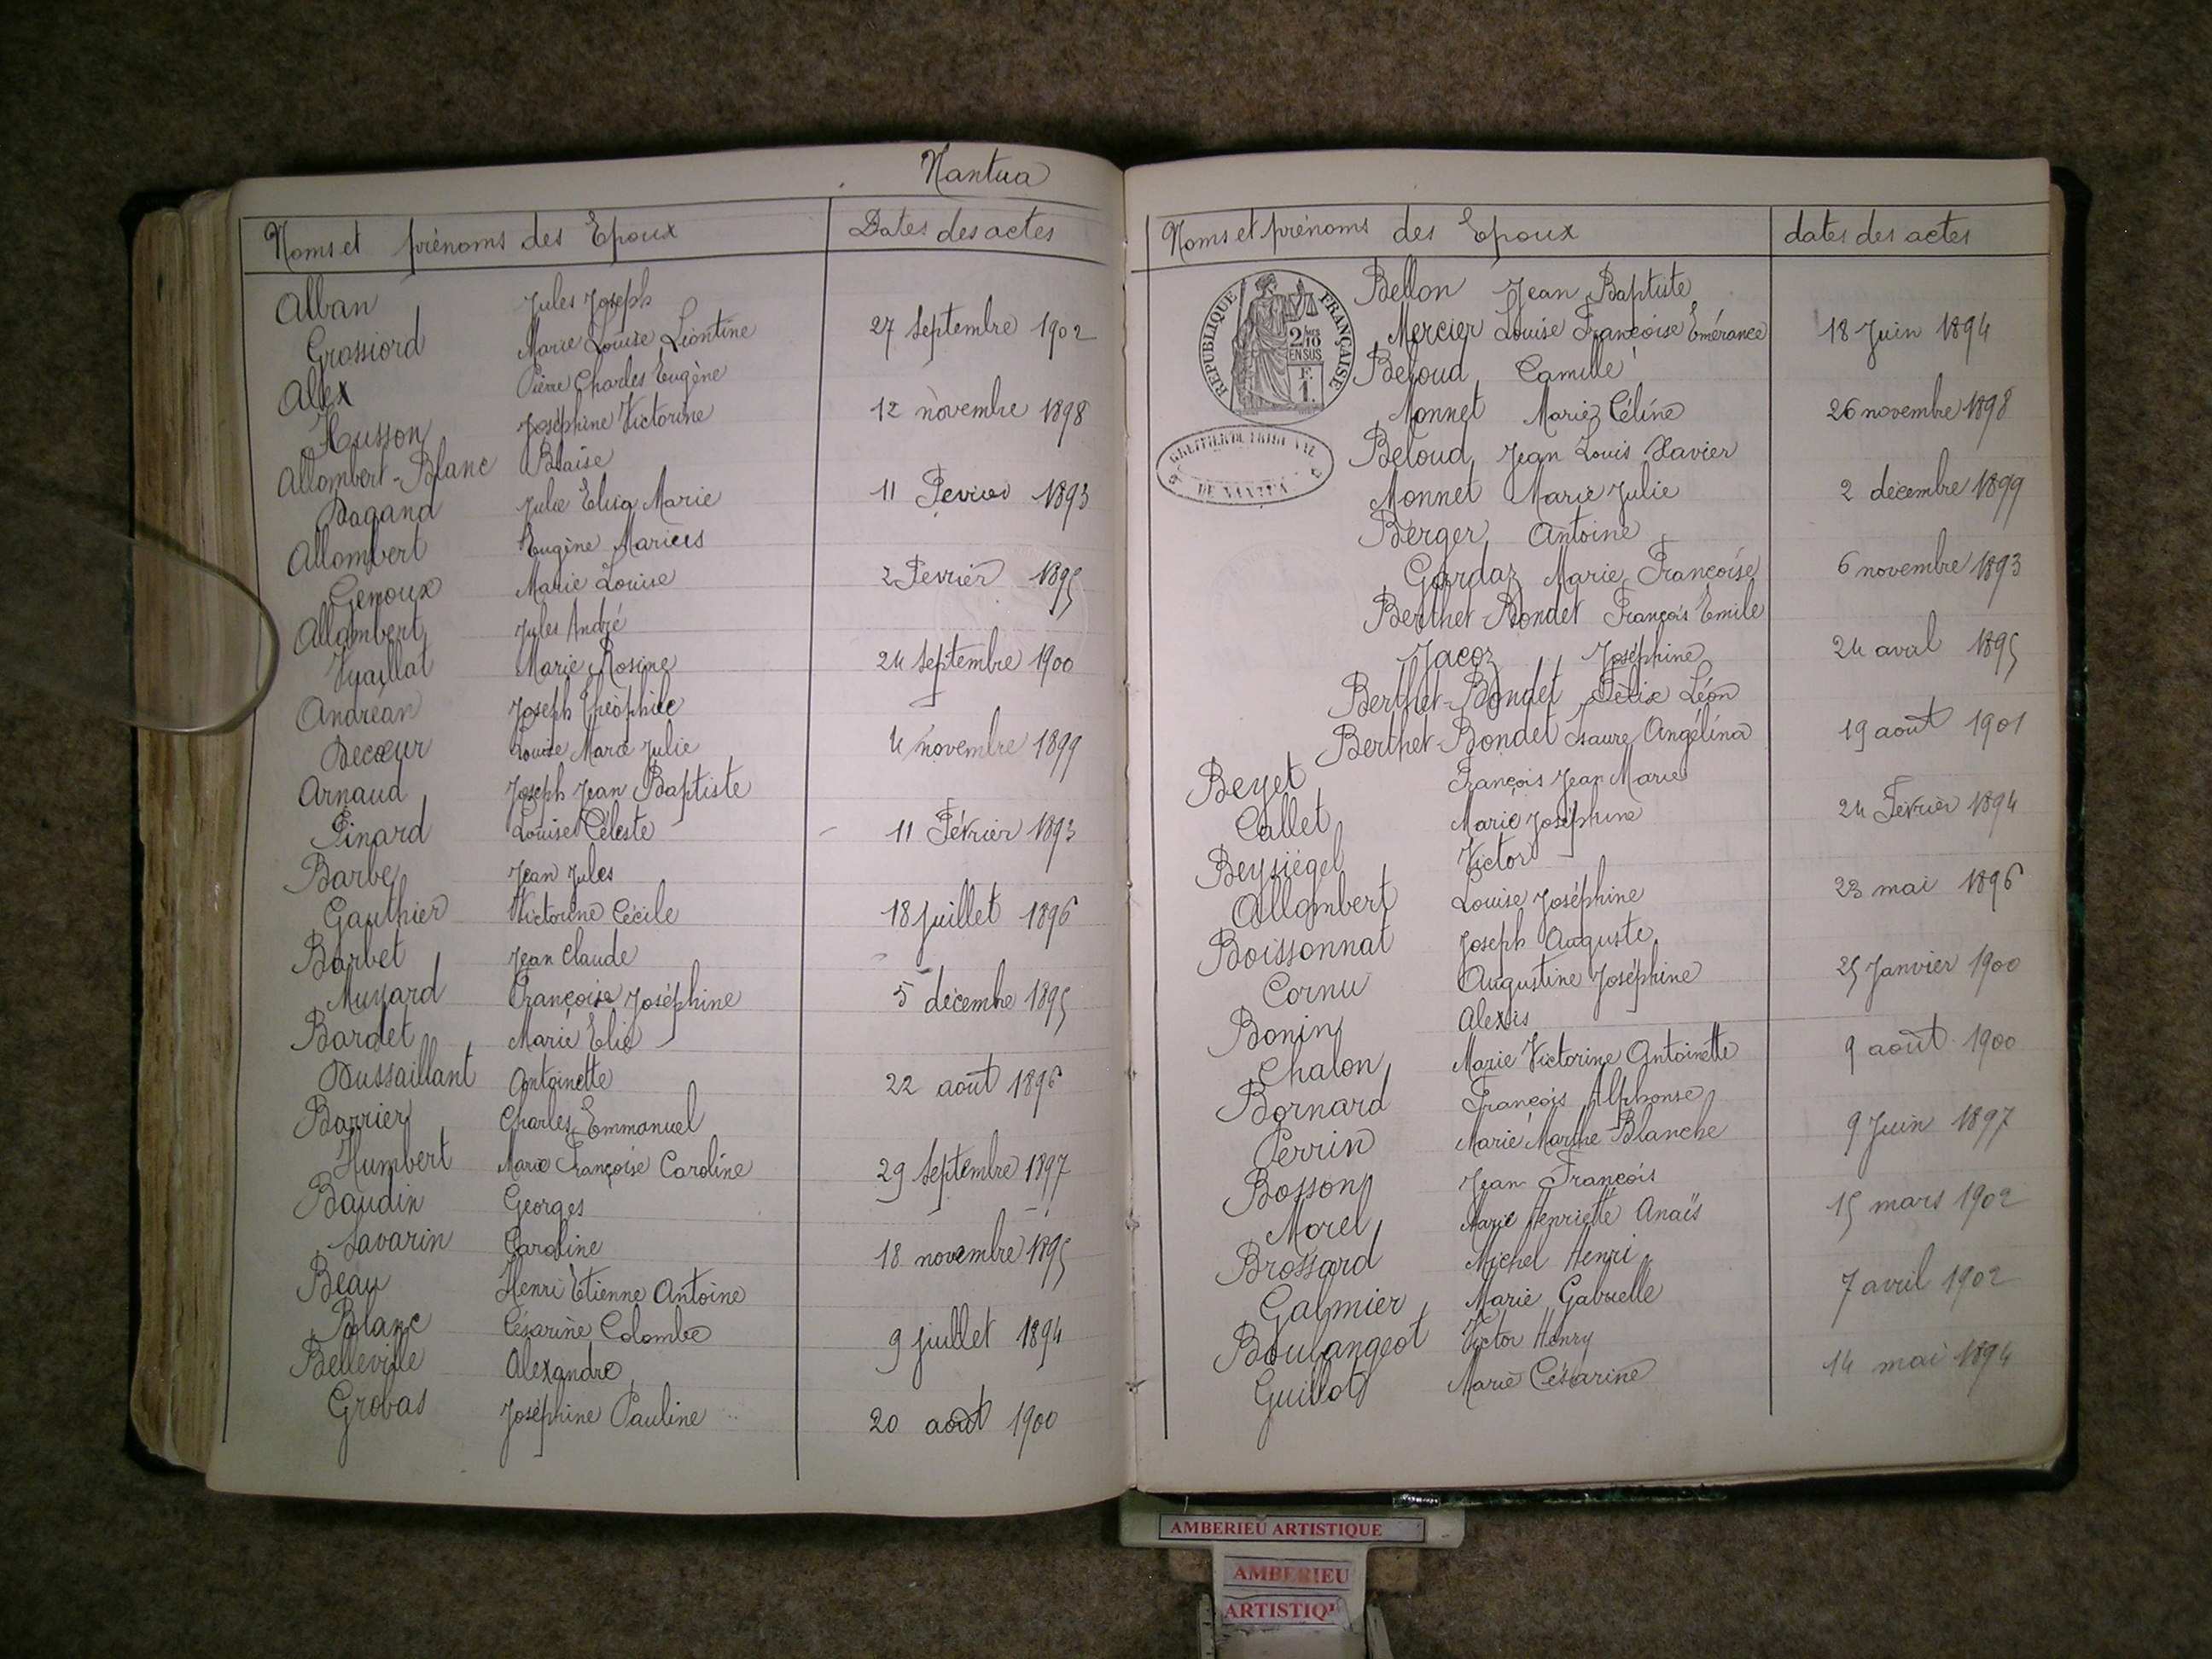 Nantua
Noms et prénoms des Epoux Dates des actes
Alban Jules Joseph
Grossiord Marie Louise Léontine 27 septembre 1902
Alex Pierre Charles Eugène
Husson Joséphine Victorine 12 novembre 1898
Allombert-Blanc Blaise
Dagand Julie Elisa Marie 11 Fevrier 1893
Allombert Eugène Marius
Genoux Marie Louise 2 Fevrier 1895
Allombert Jules André
Vuaillat Marie Rosine 24 septembre 1900
Andréan Joseph Théophile
Decœur Louise Marie Julie 4 novembre 1899
Arnaud Joseph Jean Baptiste
Pinard Louise Céleste 11 Février 1893
Barbe Jean Jules
Gauthier Victorine Cécile 18 juillet 1896
Barbet Jean Claude
Muyard Françoise Joséphine 5 décembre 1895
Bardet Marie Elie
Dussaillant Antoinette 22 août 1896
Barrier Charles Emmanuel
Humbert Marie Françoise Caroline 29 septembre 1897
Baudin Georges
Savarin Caroline 18 novembre 1895
Beau Henri Etienne Antoine
Blanc Césarine Colombe 9 juillet 1894
Belleville Alexandre
Grobas Joséphine Pauline 20 août 1900
Noms et prénoms des Epoux dates des actes
RÉPUBLIQUE FRANÇAISE
2/10
EN SUS
F.
1.
DE NANTUA
Bellon Jean Baptiste
Mercier Louise Françoise Emérance 18 Juin 1894
Beloud Camille
Monnet Marie Céline 26 novembre 1898
Beloud Jean Louis Xavier
Monnet Marie Julie 2 décembre 1899
Berger Antoine
Gardaz Marie Françoise 6 novembre 1893
Berthet-Bondet François Emile
Jacoz Joséphine 24 avril 1895
Berthet-Bondet Félix Léon
Berthet-Bondet Isaure Angélina 19 août 1901
Beyet François Jean Marie
Callet Marie Joséphine 24 Février 1894
Beysiégel Victor
Allombert Louise Joséphine 23 mai 1896
Boissonnat Joseph Auguste
Cornu Augustine Joséphine 25 Janvier 1900
Bonin Alexis
Chalon Marie Victorine Antoinette 9 août 1900
Bornard François Alphonse
Perrin Marie Marthe Blanche 9 Juin 1897
Bosson Jean François
Morel Marie Henriette Anaïs 15 mars 1902
Brossard Michel Henri
Galmier Marie Gabrielle 7 avril 1902
Boulangeot Victor Henry
Guillot Marie Césarine 14 mai 1894
AMBERIEU ARTISTIQUE
AMBERIEU
ARTISTIQU